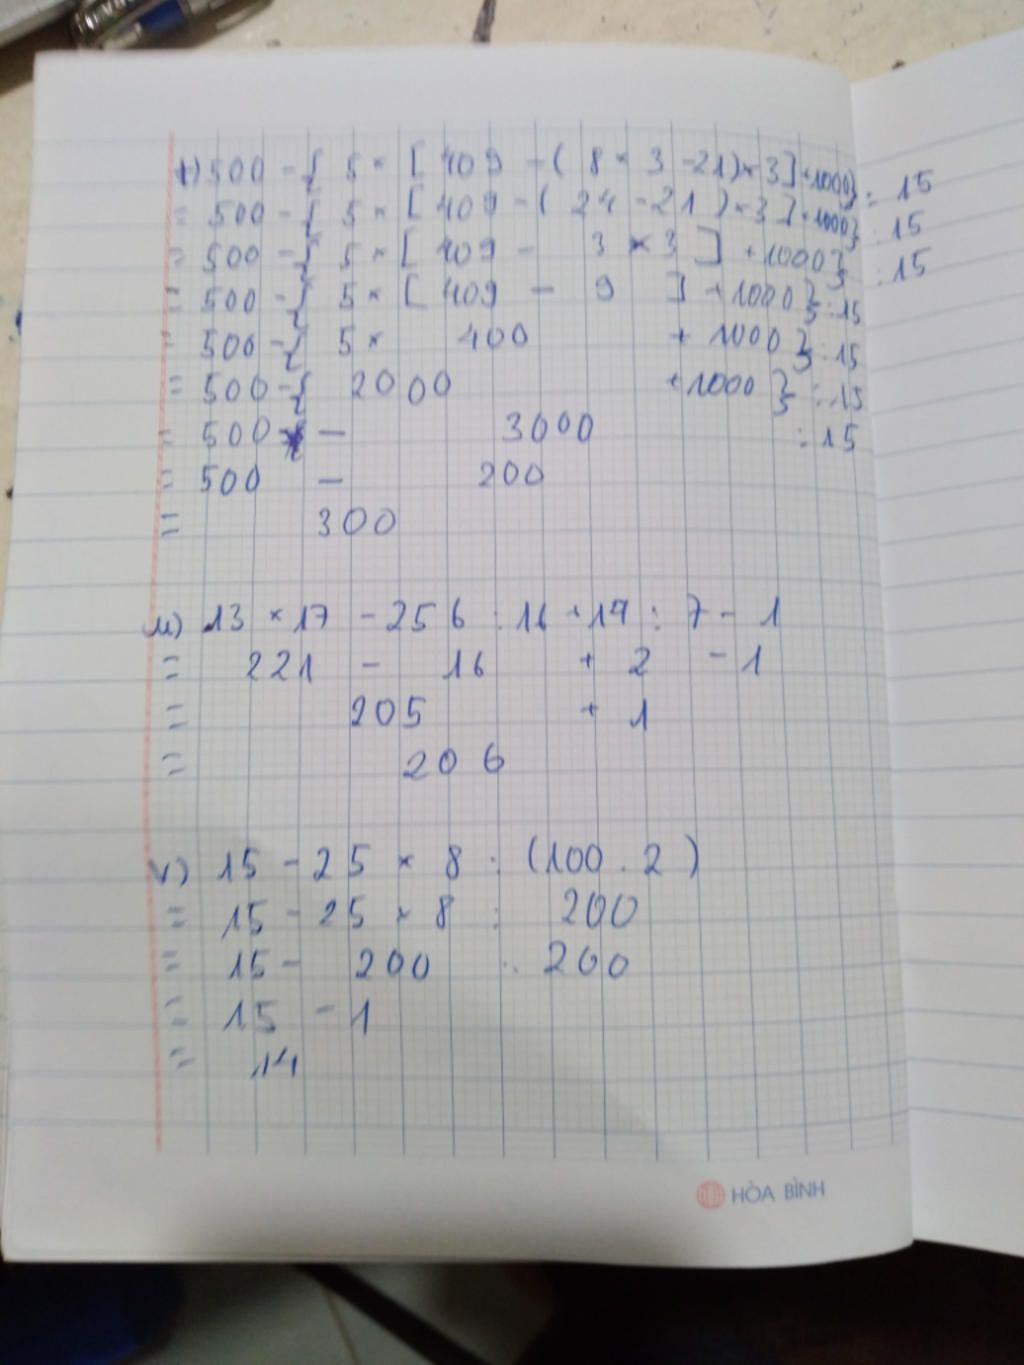 t) 500 - { 5 × [ 409 - ( 8 × 3 - 21 ) × 3 ] + 1000 } : 15
= 500 - { 5 × [ 409 - ( 24 - 21 ) × 3 ] + 1000 } : 15
= 500 - { 5 × [ 409 - 3 × 3 ] + 1000 } : 15
= 500 - { 5 × [ 409 - 9 ] + 1000 } : 15
= 500 - { 5 × 400 + 1000 } : 15
= 500 - { 2000 + 1000 } : 15
= 500 - 3000 : 15
= 500 - 200
= 300
u) 13 × 17 - 256 : 16 + 14 : 7 - 1
= 221 - 16 + 2 - 1
= 205 + 1
= 206
v) 15 - 25 × 8 : (100 . 2)
= 15 - 25 × 8 : 200
= 15 - 200 : 200
= 15 - 1
= 14
HÒA BÌNH